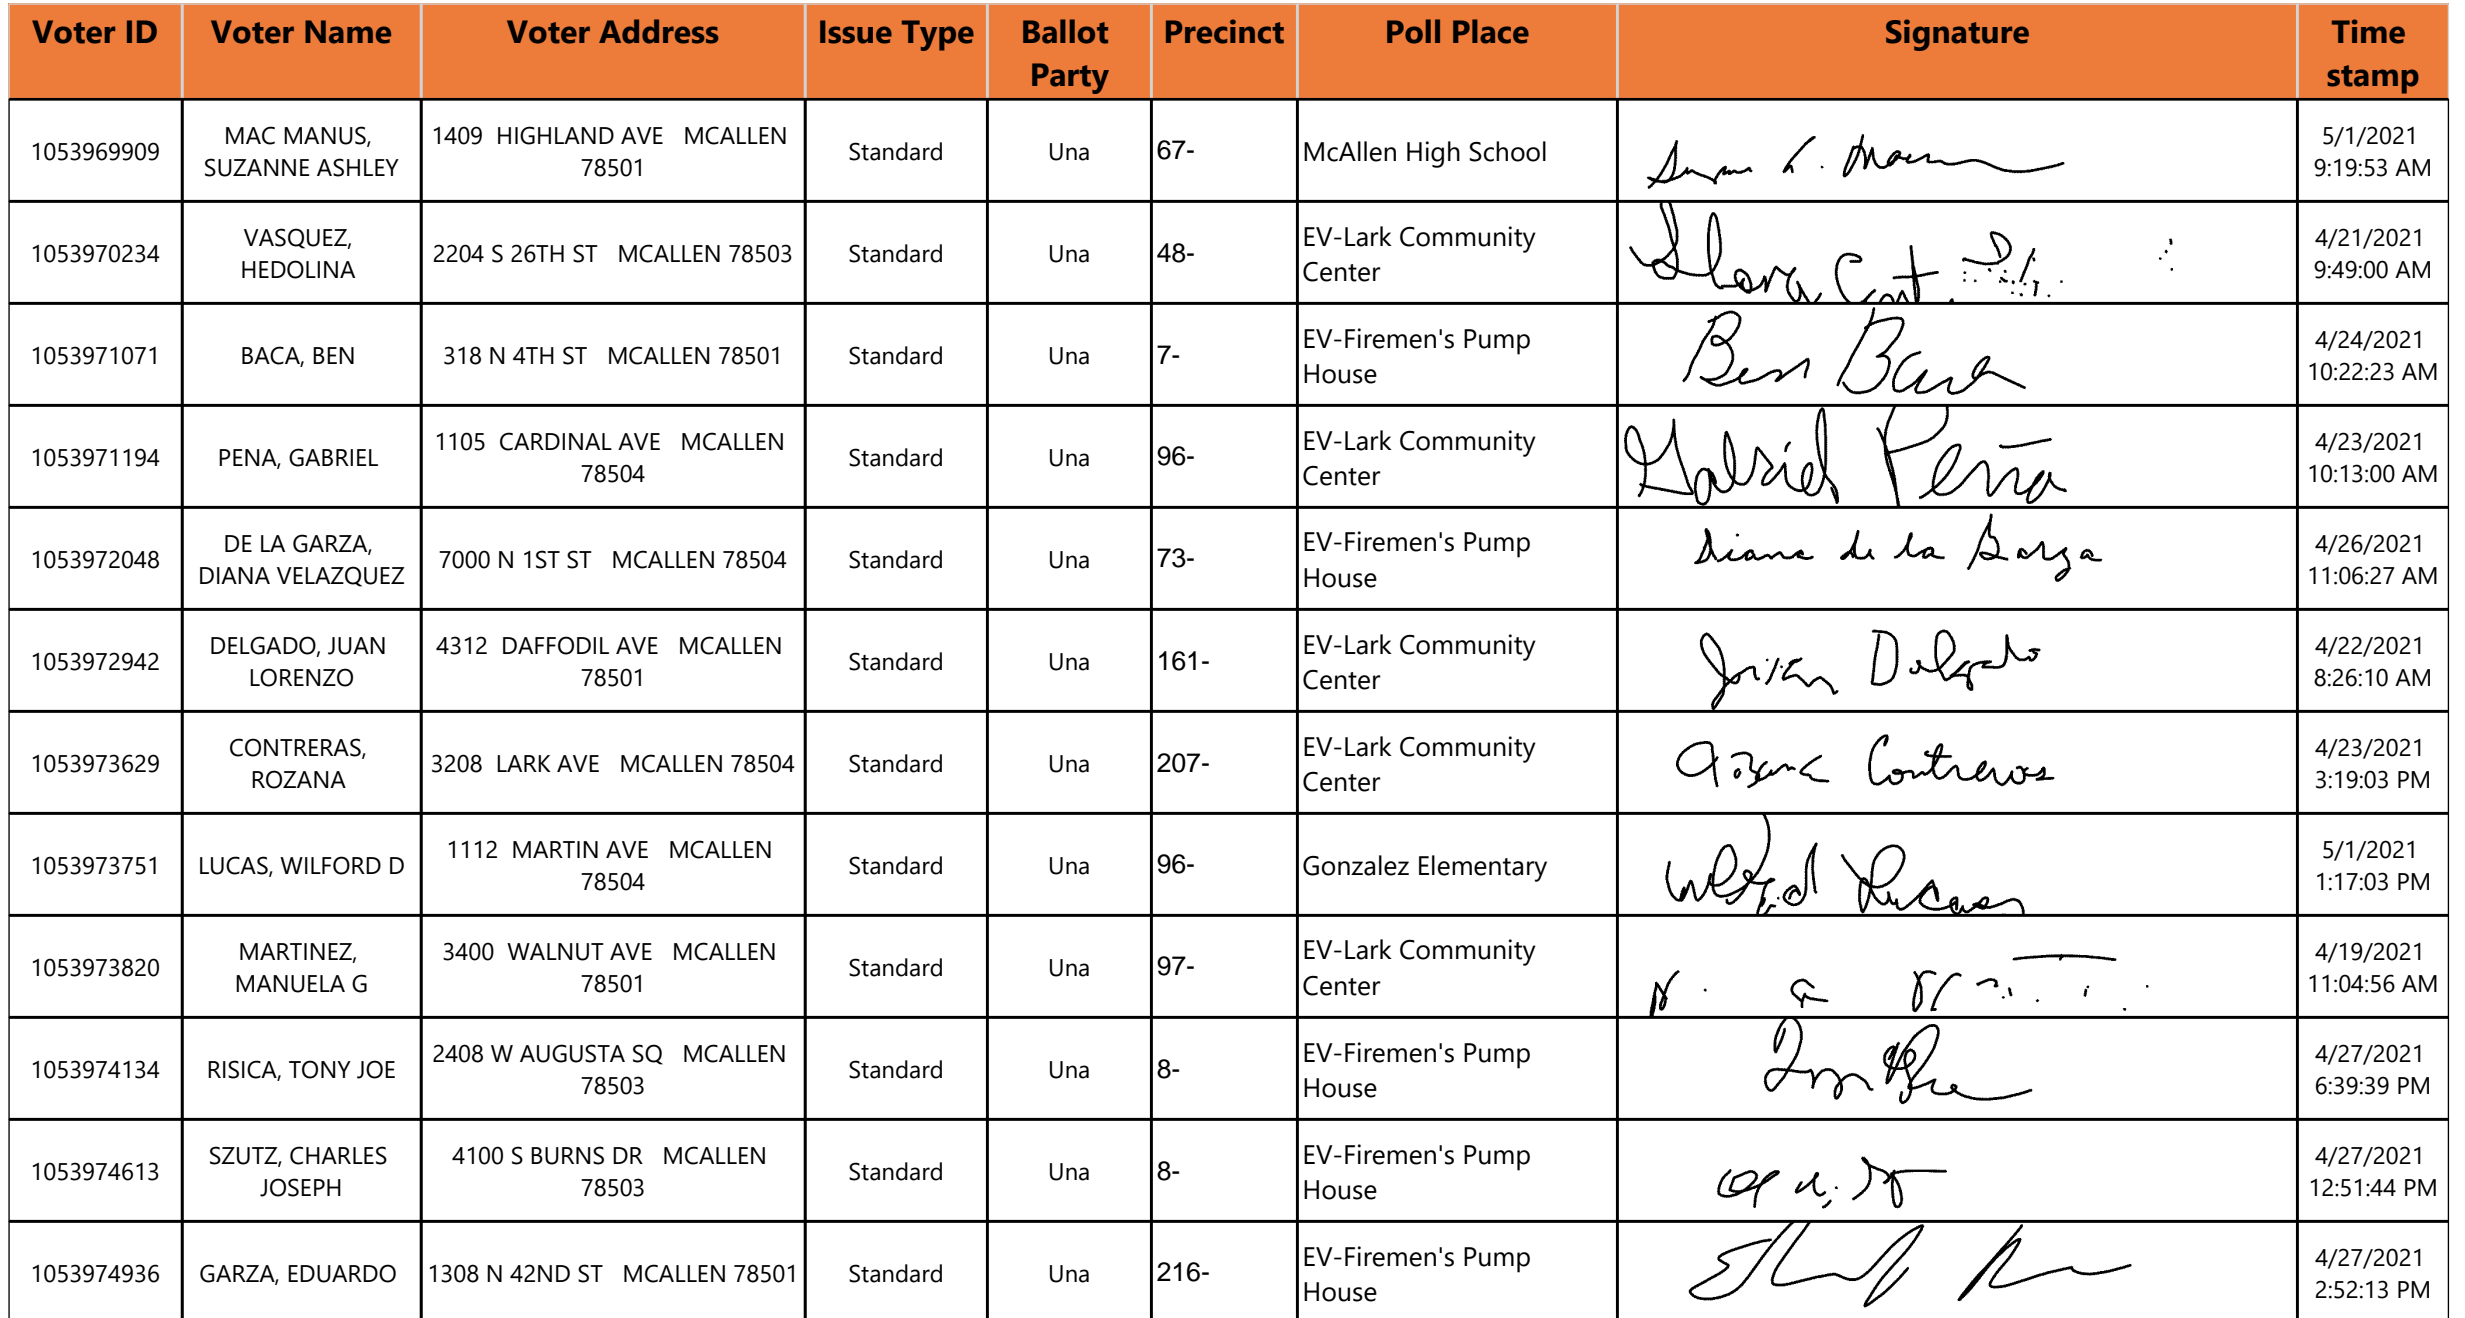 Voter ID Voter Name Voter Address Issue Type Ballot Party Precinct Poll Place Signature Time stamp
1053969909 MAC MANUS, SUZANNE ASHLEY 1409 HIGHLAND AVE MCALLEN 78501 Standard Una 67- McAllen High School 5/1/2021 9:19:53 AM
1053970234 VASQUEZ, HEDOLINA 2204 S 26TH ST MCALLEN 78503 Standard Una 48- EV-Lark Community Center 4/21/2021 9:49:00 AM
1053971071 BACA, BEN 318 N 4TH ST MCALLEN 78501 Standard Una 7- EV-Firemen's Pump House Ben Baca 4/24/2021 10:22:23 AM
1053971194 PENA, GABRIEL 1105 CARDINAL AVE MCALLEN 78504 Standard Una 96- EV-Lark Community Center Gabriel Peña 4/23/2021 10:13:00 AM
1053972048 DE LA GARZA, DIANA VELAZQUEZ 7000 N 1ST ST MCALLEN 78504 Standard Una 73- EV-Firemen's Pump House Diana de la Garza 4/26/2021 11:06:27 AM
1053972942 DELGADO, JUAN LORENZO 4312 DAFFODIL AVE MCALLEN 78501 Standard Una 161- EV-Lark Community Center Juan Delgado 4/22/2021 8:26:10 AM
1053973629 CONTRERAS, ROZANA 3208 LARK AVE MCALLEN 78504 Standard Una 207- EV-Lark Community Center Rozana Contreras 4/23/2021 3:19:03 PM
1053973751 LUCAS, WILFORD D 1112 MARTIN AVE MCALLEN 78504 Standard Una 96- Gonzalez Elementary Wilford Lucas 5/1/2021 1:17:03 PM
1053973820 MARTINEZ, MANUELA G 3400 WALNUT AVE MCALLEN 78501 Standard Una 97- EV-Lark Community Center 4/19/2021 11:04:56 AM
1053974134 RISICA, TONY JOE 2408 W AUGUSTA SQ MCALLEN 78503 Standard Una 8- EV-Firemen's Pump House 4/27/2021 6:39:39 PM
1053974613 SZUTZ, CHARLES JOSEPH 4100 S BURNS DR MCALLEN 78503 Standard Una 8- EV-Firemen's Pump House 4/27/2021 12:51:44 PM
1053974936 GARZA, EDUARDO 1308 N 42ND ST MCALLEN 78501 Standard Una 216- EV-Firemen's Pump House 4/27/2021 2:52:13 PM